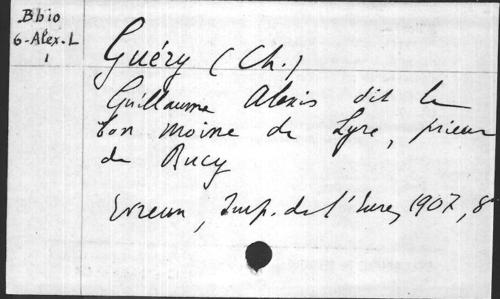 Bbio
6-Alex.L
1
Guéry (Ch.)
Guillaume Alexis dit le
bon moine de Lyre, prieur
de Bucy
Evreux, Imp. de l'Eure, 1907, 8°